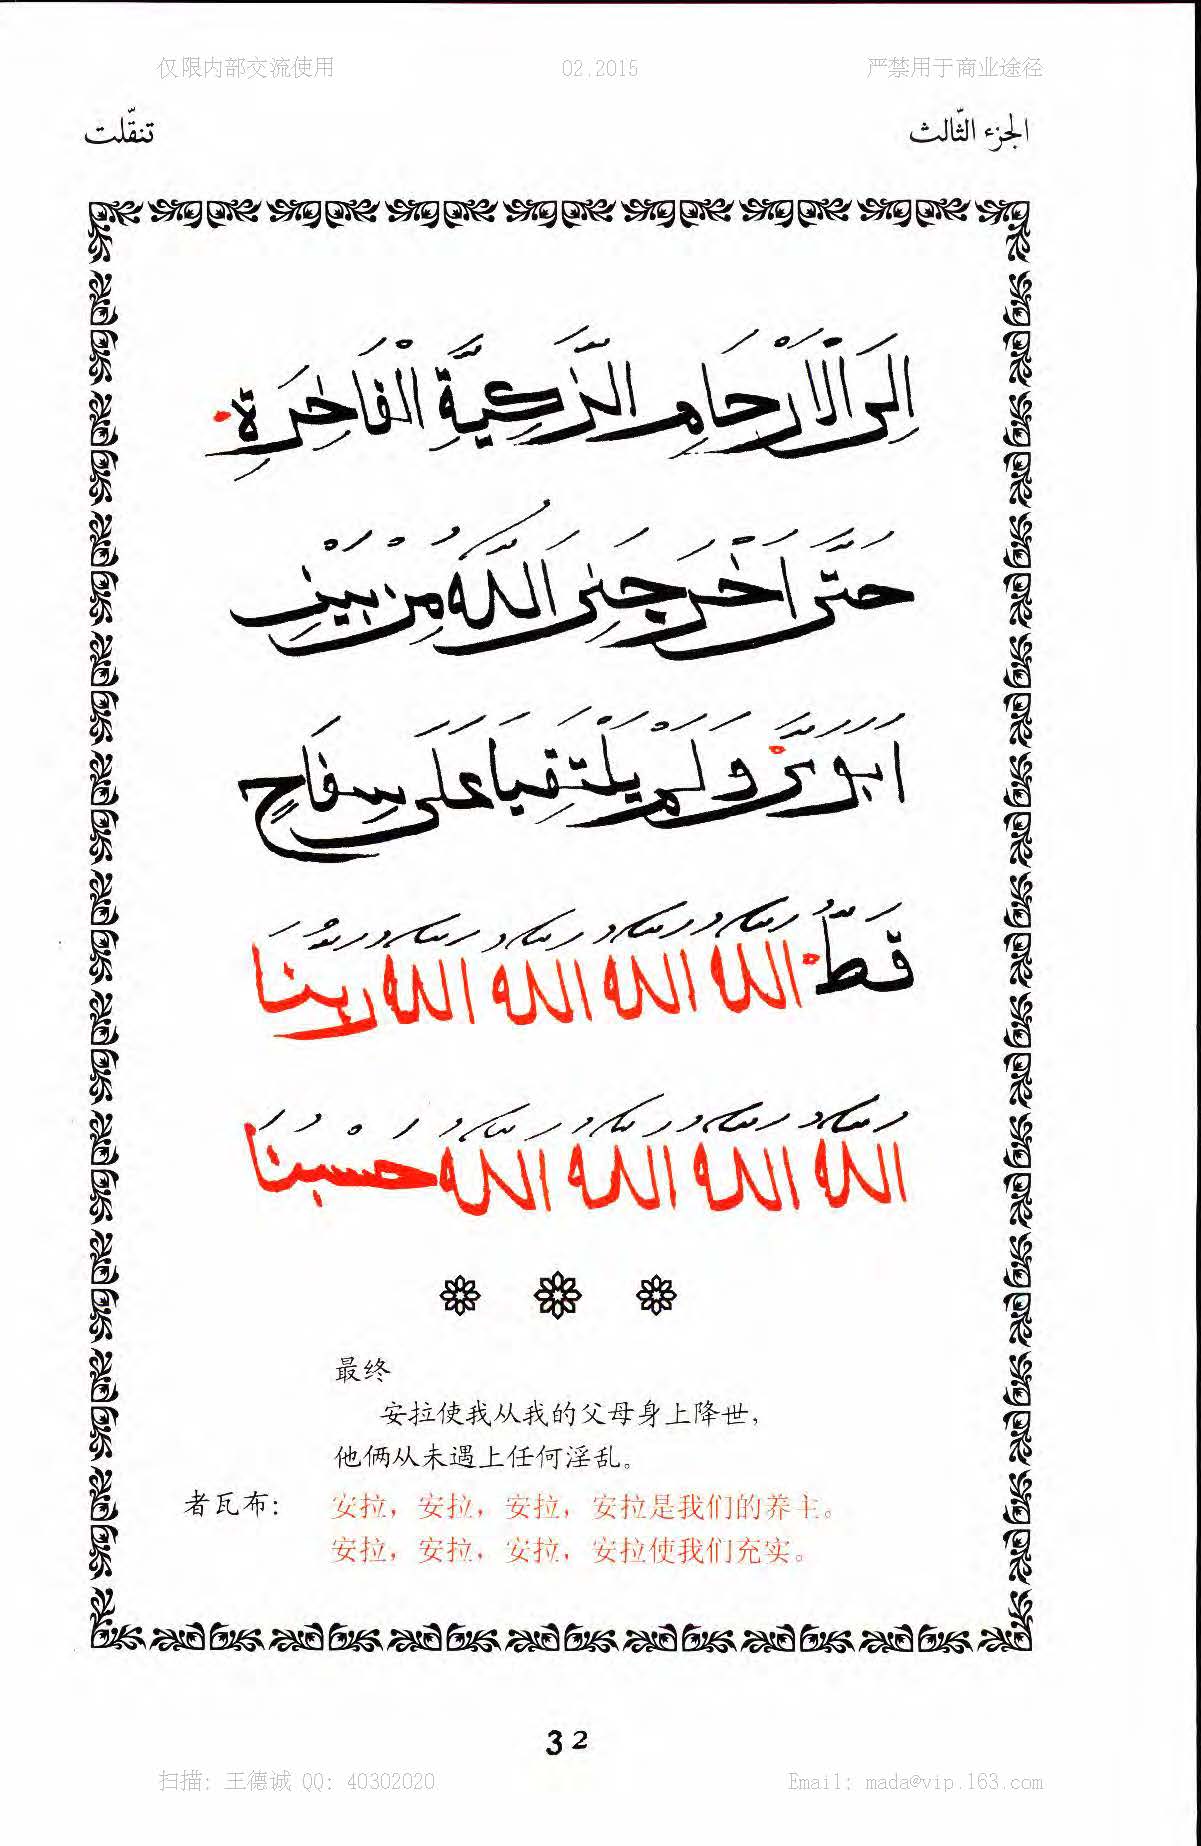 仅限内部交流使用 02.2015 严禁用于商业途径
الجزء الثّالث تنقّلت
اِلَى الْاَرْحَامِ الزَّكِيَّةِ الْفَاخِرَةِ
حَتَّى اَخْرَجَنِى اللّٰهُ مِنْ بَيْنِ
اَبَوَىَّ وَلَمْ يَلْتَقِيَا عَلَى سِفَاحٍ
قَطُّ اَللّٰهُ اَللّٰهُ اَللّٰهُ اَللّٰهُ رَبُّنَا
اَللّٰهُ اَللّٰهُ اَللّٰهُ اَللّٰهُ حَسْبُنَا
最终
安拉使我从我的父母身上降世，
他俩从未遇上任何淫乱。
者瓦布： 安拉，安拉，安拉，安拉是我们的养主。
安拉，安拉，安拉，安拉使我们充实。
32
扫描: 王德诚 QQ: 40302020 Email: mada@vip.163.com